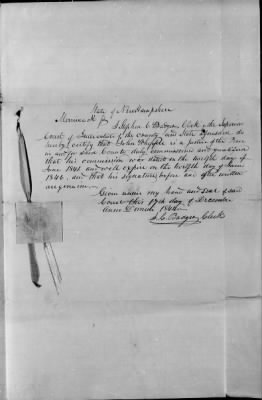 State of Newhampshire
Merrimack Ss
I Stephen C Badger, Clerk of the Superior
Court of Judicature of the county and State aforesaid do
hereby certify that John Whipple is a justice of the Peace
in and for said County duly commissioned and qualified
that his commission was dated on the twelfth day of
June 1841 and will expire on the twelfth day of June
1846, and that his signatures before are after written
are genuine.
Given under my hand and seal of said
Court this 17th day of December
Anno Domini 1844
S. C. Badger, Clerk